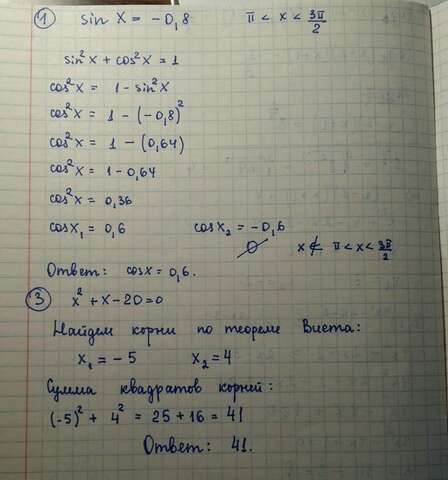 1 sin x = -0,8 π < x < 3π/2
sin²x + cos²x = 1
cos²x = 1 - sin²x
cos²x = 1 - (-0,8)²
cos²x = 1 - (0,64)
cos²x = 1 - 0,64
cos²x = 0,36
cos x₁ = 0,6 cos x₂ = -0,6
∅ x ∉ π < x < 3π/2
Ответ: cos x = 0,6.
3 x² + x - 20 = 0
Найдем корни по теореме Виета:
x₁ = -5 x₂ = 4
Сумма квадратов корней:
(-5)² + 4² = 25 + 16 = 41
Ответ: 41.